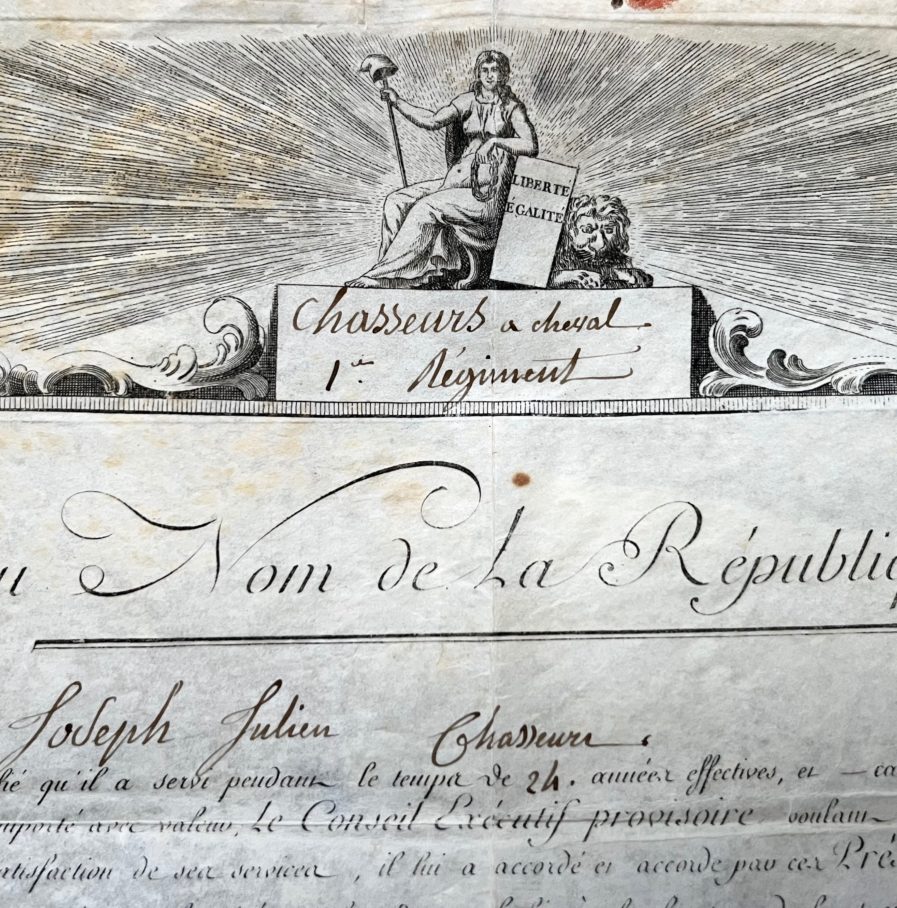 LIBERTÉ
ÉGALITÉ
Chasseurs a cheval
1er Régiment
u Nom de La Républiq
Joseph Julien Chasseur.
ié qu'il a servi pendant le temps de 24. années effectives, et — ca
mporté avec valeur, Le Conseil Exécutif provisoire voulant
atisfaction de ses services, il lui a accordé et accorde par ces Pré